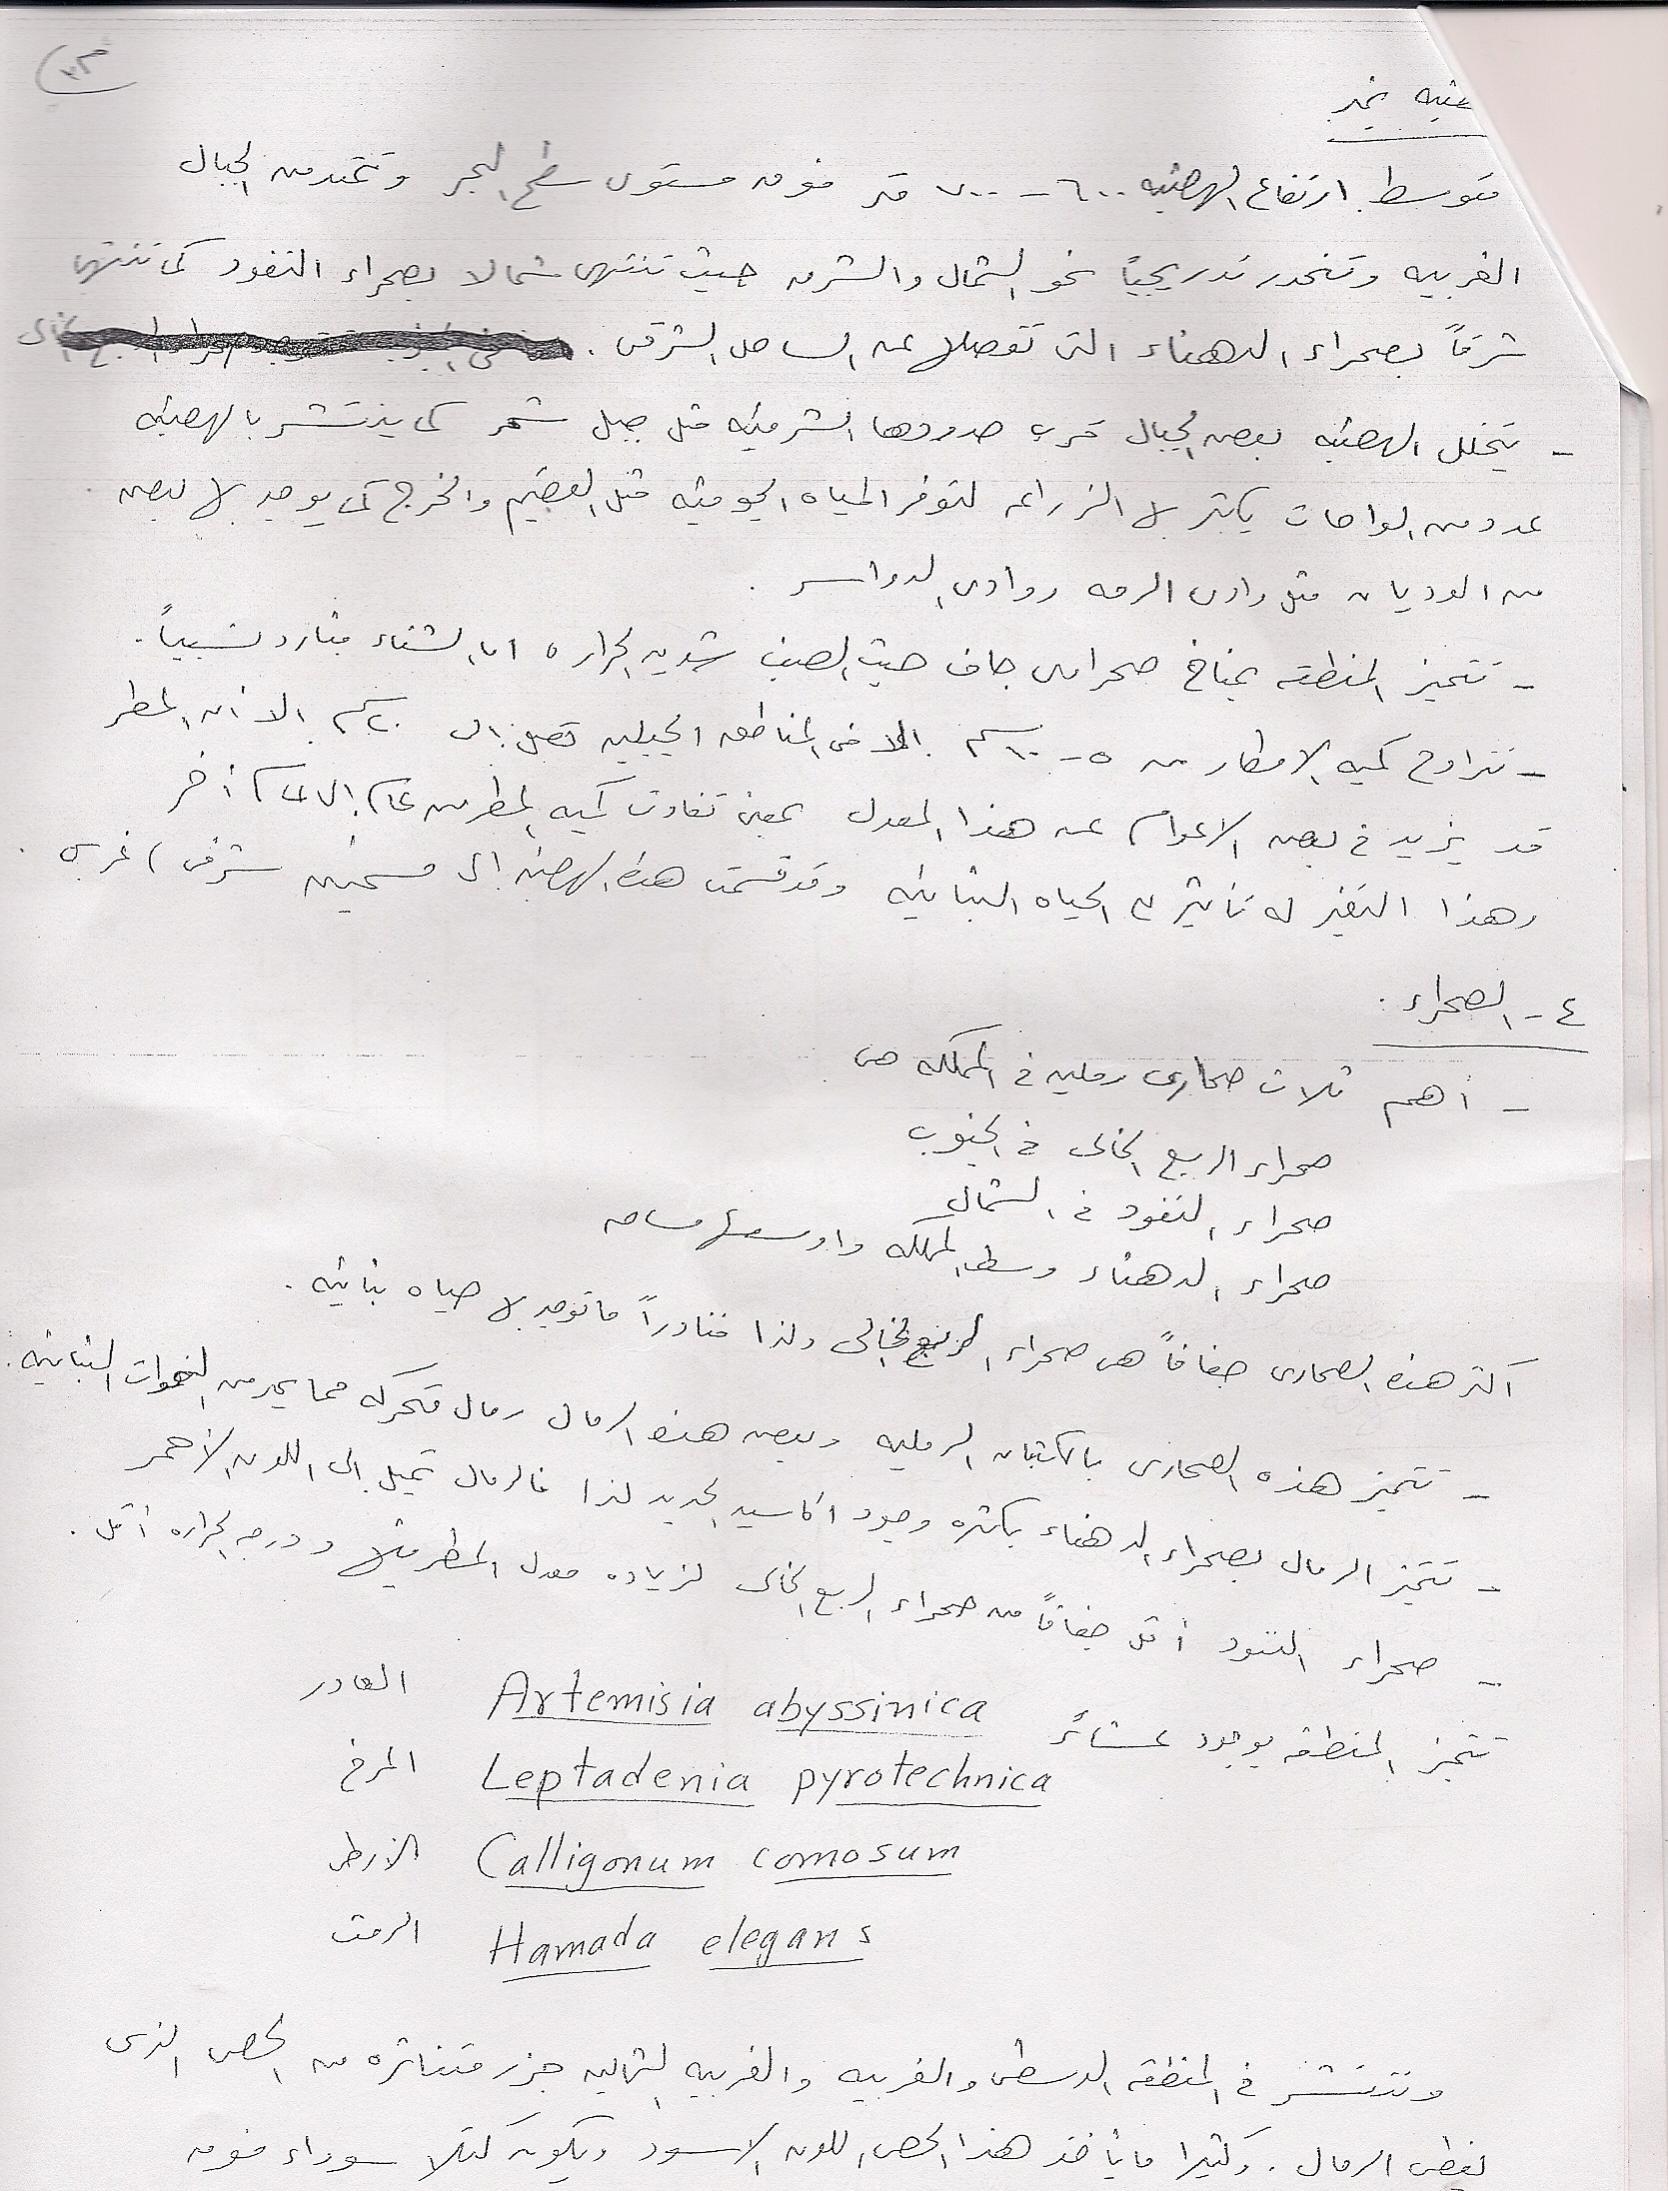 هضبه نجد
متوسط ارتفاع الهضبه ٦٠٠ - ٧٠٠ متر فوق مستوى سطح البحر وتمتد من الجبال
الغربيه وتنحدر تدريجياً نحو الشمال والشرق حيث تنتهى شمالا بصحراء النفود كما تنتهى
شرقاً بصحراء الدهناء التى تفصلها عن الساحل الشرقى .
- يتخلل الهضبه بعض الجبال قرب حدودها الشرقيه مثل جبل شمر كما ينتشر بالهضبه
عدد من الواحات يكثر بها الزراعه لتوفر المياه الجوفيه مثل القصيم والخرج كما يوجد بها بعض
من الوديان مثل وادى الرمه ووادى الدواسر .
- تتميز المنطقه بمناخ صحراوى جاف حيث الصيف شديد الحراره اما الشتاء فبارد نسبياً .
- تتراوح كميه الامطار من ٥ - ١٠ سم الا فى المناطق الجبليه تصل الى ٢٠ سم الا أن المطر
قد يزيد فى بعض الاعوام عن هذا المعدل بمعنى تفاوت كميه المطر من عام الى عام أخر
وهذا التغير له تأثير على الحياه النباتيه وقد قسمت هذه الهضبه الى قسمين شرقى ) غربى .
٤ - الصحراء :
- أهم ثلاث صحارى رمليه فى المملكه هى
صحراء الربع الخالى فى الجنوب
صحراء النفود فى الشمال
صحراء الدهناء وسط المملكه واوسعها مساحه
اكثر هذه الصحارى جفافاً هى صحراء الربع الخالى ولذا فنادراً ماتوجد بها حياه نباتيه .
- تتميز هذه الصحارى بالكثبان الرمليه وبعض هذه الرمال رمال متحركه مما يحد من النموات النباتيه .
- تتميز الرمال بصحراء الدهناء بكثره وجود اكاسيد الحديد لذا فالرمال تميل الى اللون الأحمر
- صحراء النفود أقل جفافاً من صحراء الربع الخالى لزياده معدل المطر فيها ودرجه الحراره أقل .
تتميز المنطقه بوجود عشائر Artemisia abyssinica العادر
Leptadenia pyrotechnica المرخ
Calligonum comosum الارطى
Hamada elegans الرمث
وتنتشر فى المنطقه الوسطى والغربيه والغربيه الشماليه جزر متناثره من الحصى الذى
يغطى الرمال . وكثيرا مايأخذ هذا الحصى اللون الاسود ويكون كتلا سوداء فوق